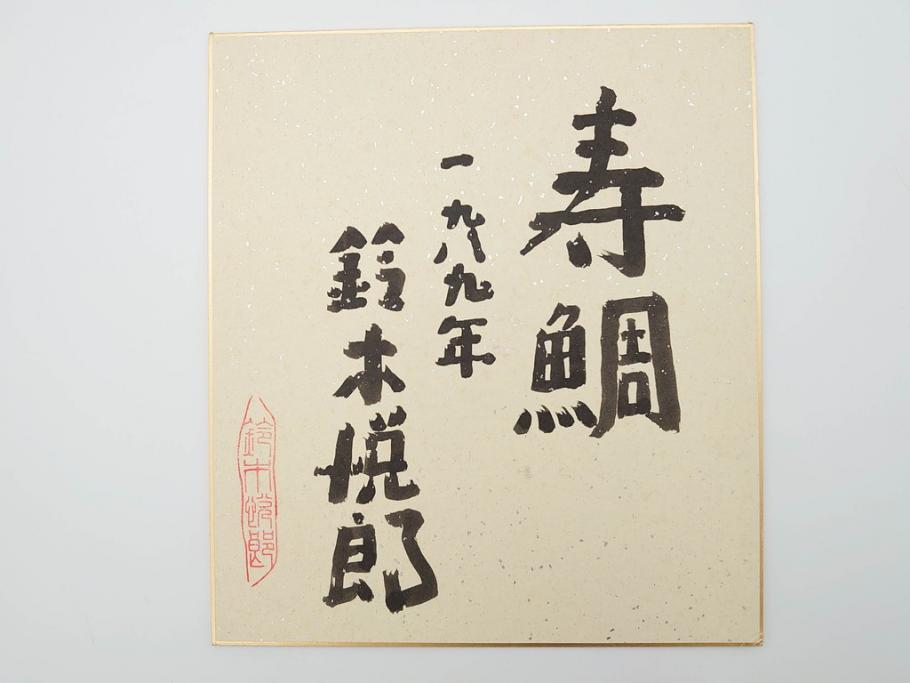 寿鯛
一九八九年
鈴木悦郎
鈴木悦郎